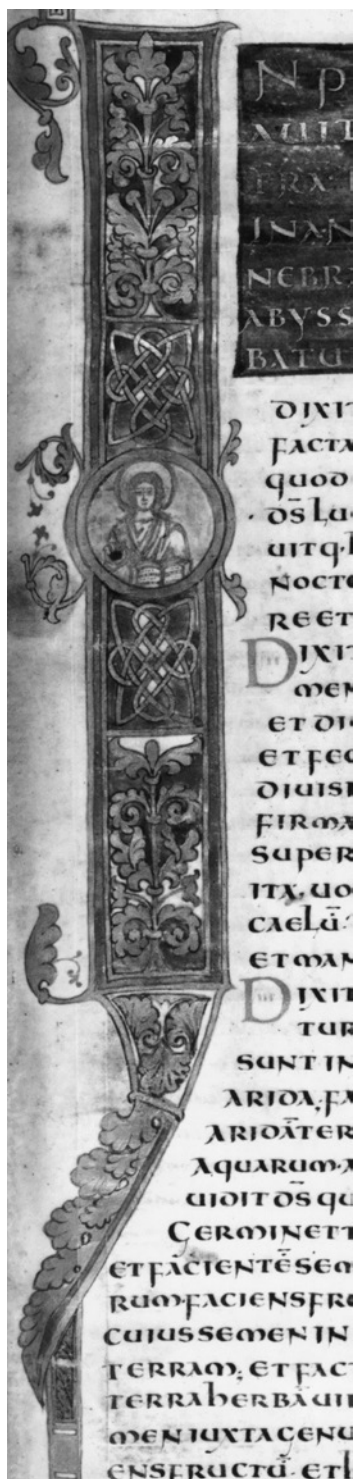 N P
AUIT
ERA·
INAN
NEBRA
ABYSS
BATU
DIXIT
FACTA
QUOD
DS̄ LU
UITQ·
NOCTE
RE ET
DIXIT
MEN
ET DI
ET FEC
DIUISI
FIRMA
SUPER
ITA·UO
CAELŪ·
ET MAN
DIXIT
TUR
SUNT IN
ARIDA·FA
ARIDĀTER
AQUARUM·A
UIDIT DS̄ QU
GERMINETT
ET FACIENTĒSEM
RUM·FACIENSFRU
CUIUSSEMEN IN
TERRAM; ET FACT
TERRAHERBĀUI
MENIUXTAGENU
ENSFRUCTŪ·ET